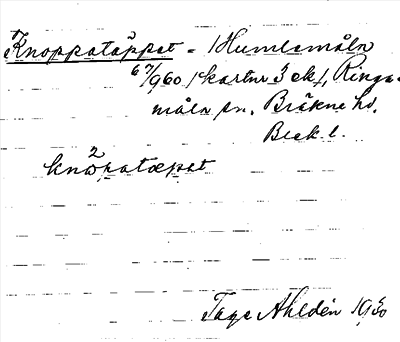 Knoppatäppet - 1 Humlemåla
67/960 /kartnr 3 ek/, Ringa-
måla sn. Bräkne hd.
Blek. l.
knωpatæpet
Tage Ahldén 1930